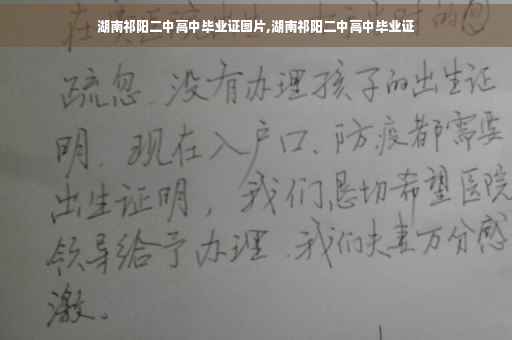 湖南祁阳二中高中毕业证图片,湖南祁阳二中高中毕业证
疏忽、没有办理孩子的出生证
明、现在入户口、防疫都需要
出生证明，我们恳切希望医院
领导给予办理、我们夫妻万分感
激。